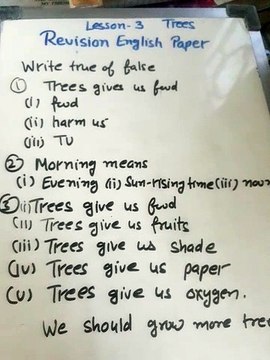 Lesson-3 Trees
Revision English Paper
Write true of false
① Trees gives us fwd
(i) fwd
(ii) harm us
(iii) TV
② Morning means
(i) Evening (ii) Sun-rising time (iii) noon
③ (i) Trees give us fwd
(ii) Trees give us fruits
(iii) Trees give us shade
(iv) Trees give us paper
(v) Trees give us oxygen.
We should grow more